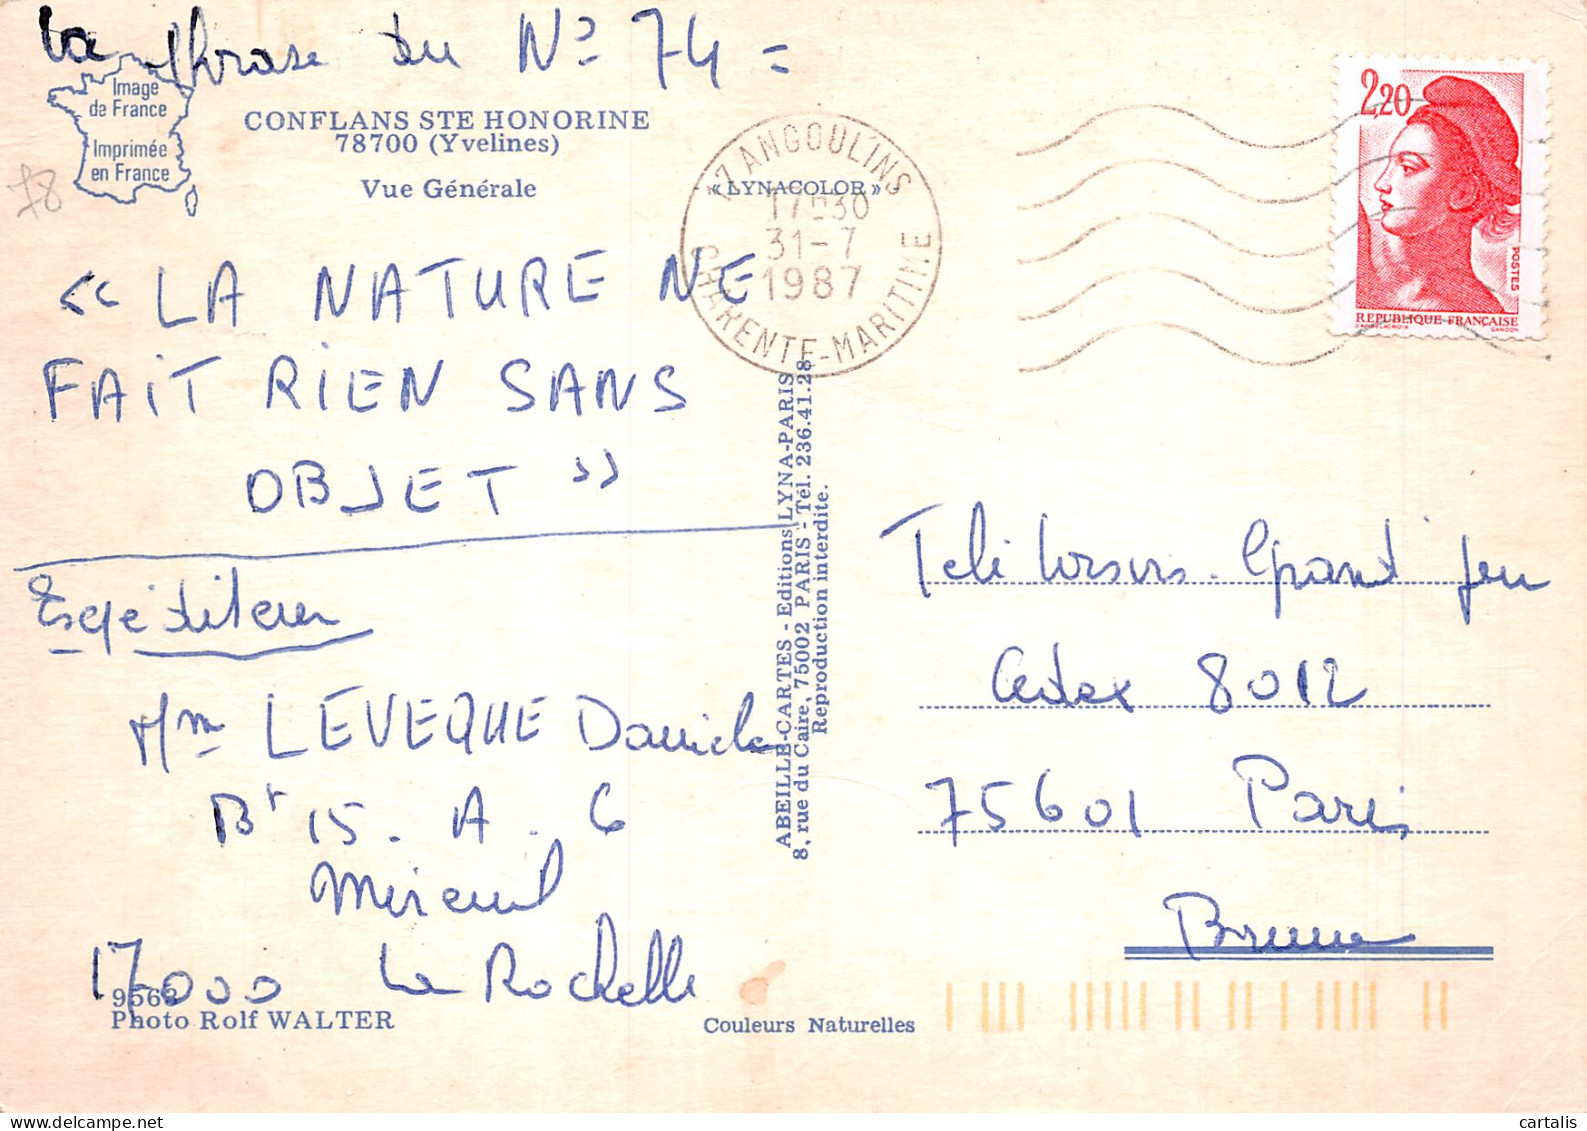 la phrase du No 74 =
Image
de France
Imprimée
en France
CONFLANS STE HONORINE
78700 (Yvelines)
Vue Générale
« LYNACOLOR »
78
17 ANGOULINS
17H30
31-7
1987
CHARENTE-MARITIME
2,20
POSTES
REPUBLIQUE FRANÇAISE
D'APRES DELACROIX GANDON
« LA NATURE NE
FAIT RIEN SANS
OBJET »
Expéditeur
Mm LEVEQUE Daniele
Bt 15. A. 6
Mireuil
17000 La Rochelle
9563
Photo Rolf WALTER
ABEILLE-CARTES - Editions LYNA-PARIS
8, rue du Caire, 75002 PARIS - Tél. 236.41.28
Reproduction interdite.
Couleurs Naturelles
Télé Loisirs. Grand Jeu
Cedex 8012
75601 Paris
Brune
cartalis
delcampe.net